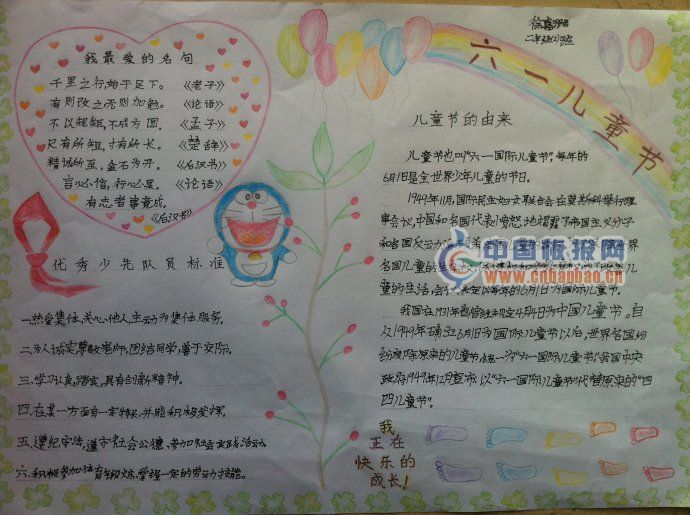 我最爱的名句
千里之行,始于足下。《老子》
有则改之无则加勉。《论语》
不以规矩,不成方圆。《孟子》
尺有所短,寸有所长。《楚辞》
精诚所至,金石为开。《后汉书》
言必信,行必果。《论语》
有志者事竟成。
《后汉书》
优秀少先队员标准
一.热爱集体,关心他人,主动为集体服务。
二.为人诚实,尊敬老师,团结同学,善于交际。
三.学习认真,踏实,具有创新精神。
四.在某一方面有一定特长,并能积极发挥。
五.遵纪守法,遵守社会公德,参加社会实践活动
六.积极参加体育锻炼,掌握一定的劳动技能。
徐
二年级
六一儿童节
儿童节的由来
儿童节也叫“六一国际儿童节”,每年的
6月1日是全世界少年儿童的节日。
1949年11月,国际民主妇女联合会在莫斯科举行理
事会议,中国和各国代表愤怒地揭露了帝国主义分子
和各国反动
各国儿童的生存
的生活 会议决定以每年的6月1日为国际儿童节。
我国在1931年曾 规定4月4日为中国儿童节。自
从1949年确立6月1日为国际儿童节以后,世界各国纷
纷废除原来的儿童节统一为“六一国际儿童节”我国中央
政府1949年12月宣布以“六一国际儿童节”代替原来的“四
四儿童节”。
中国板报网
www.cnbanbao.cn
我
正在
快乐的
成长!